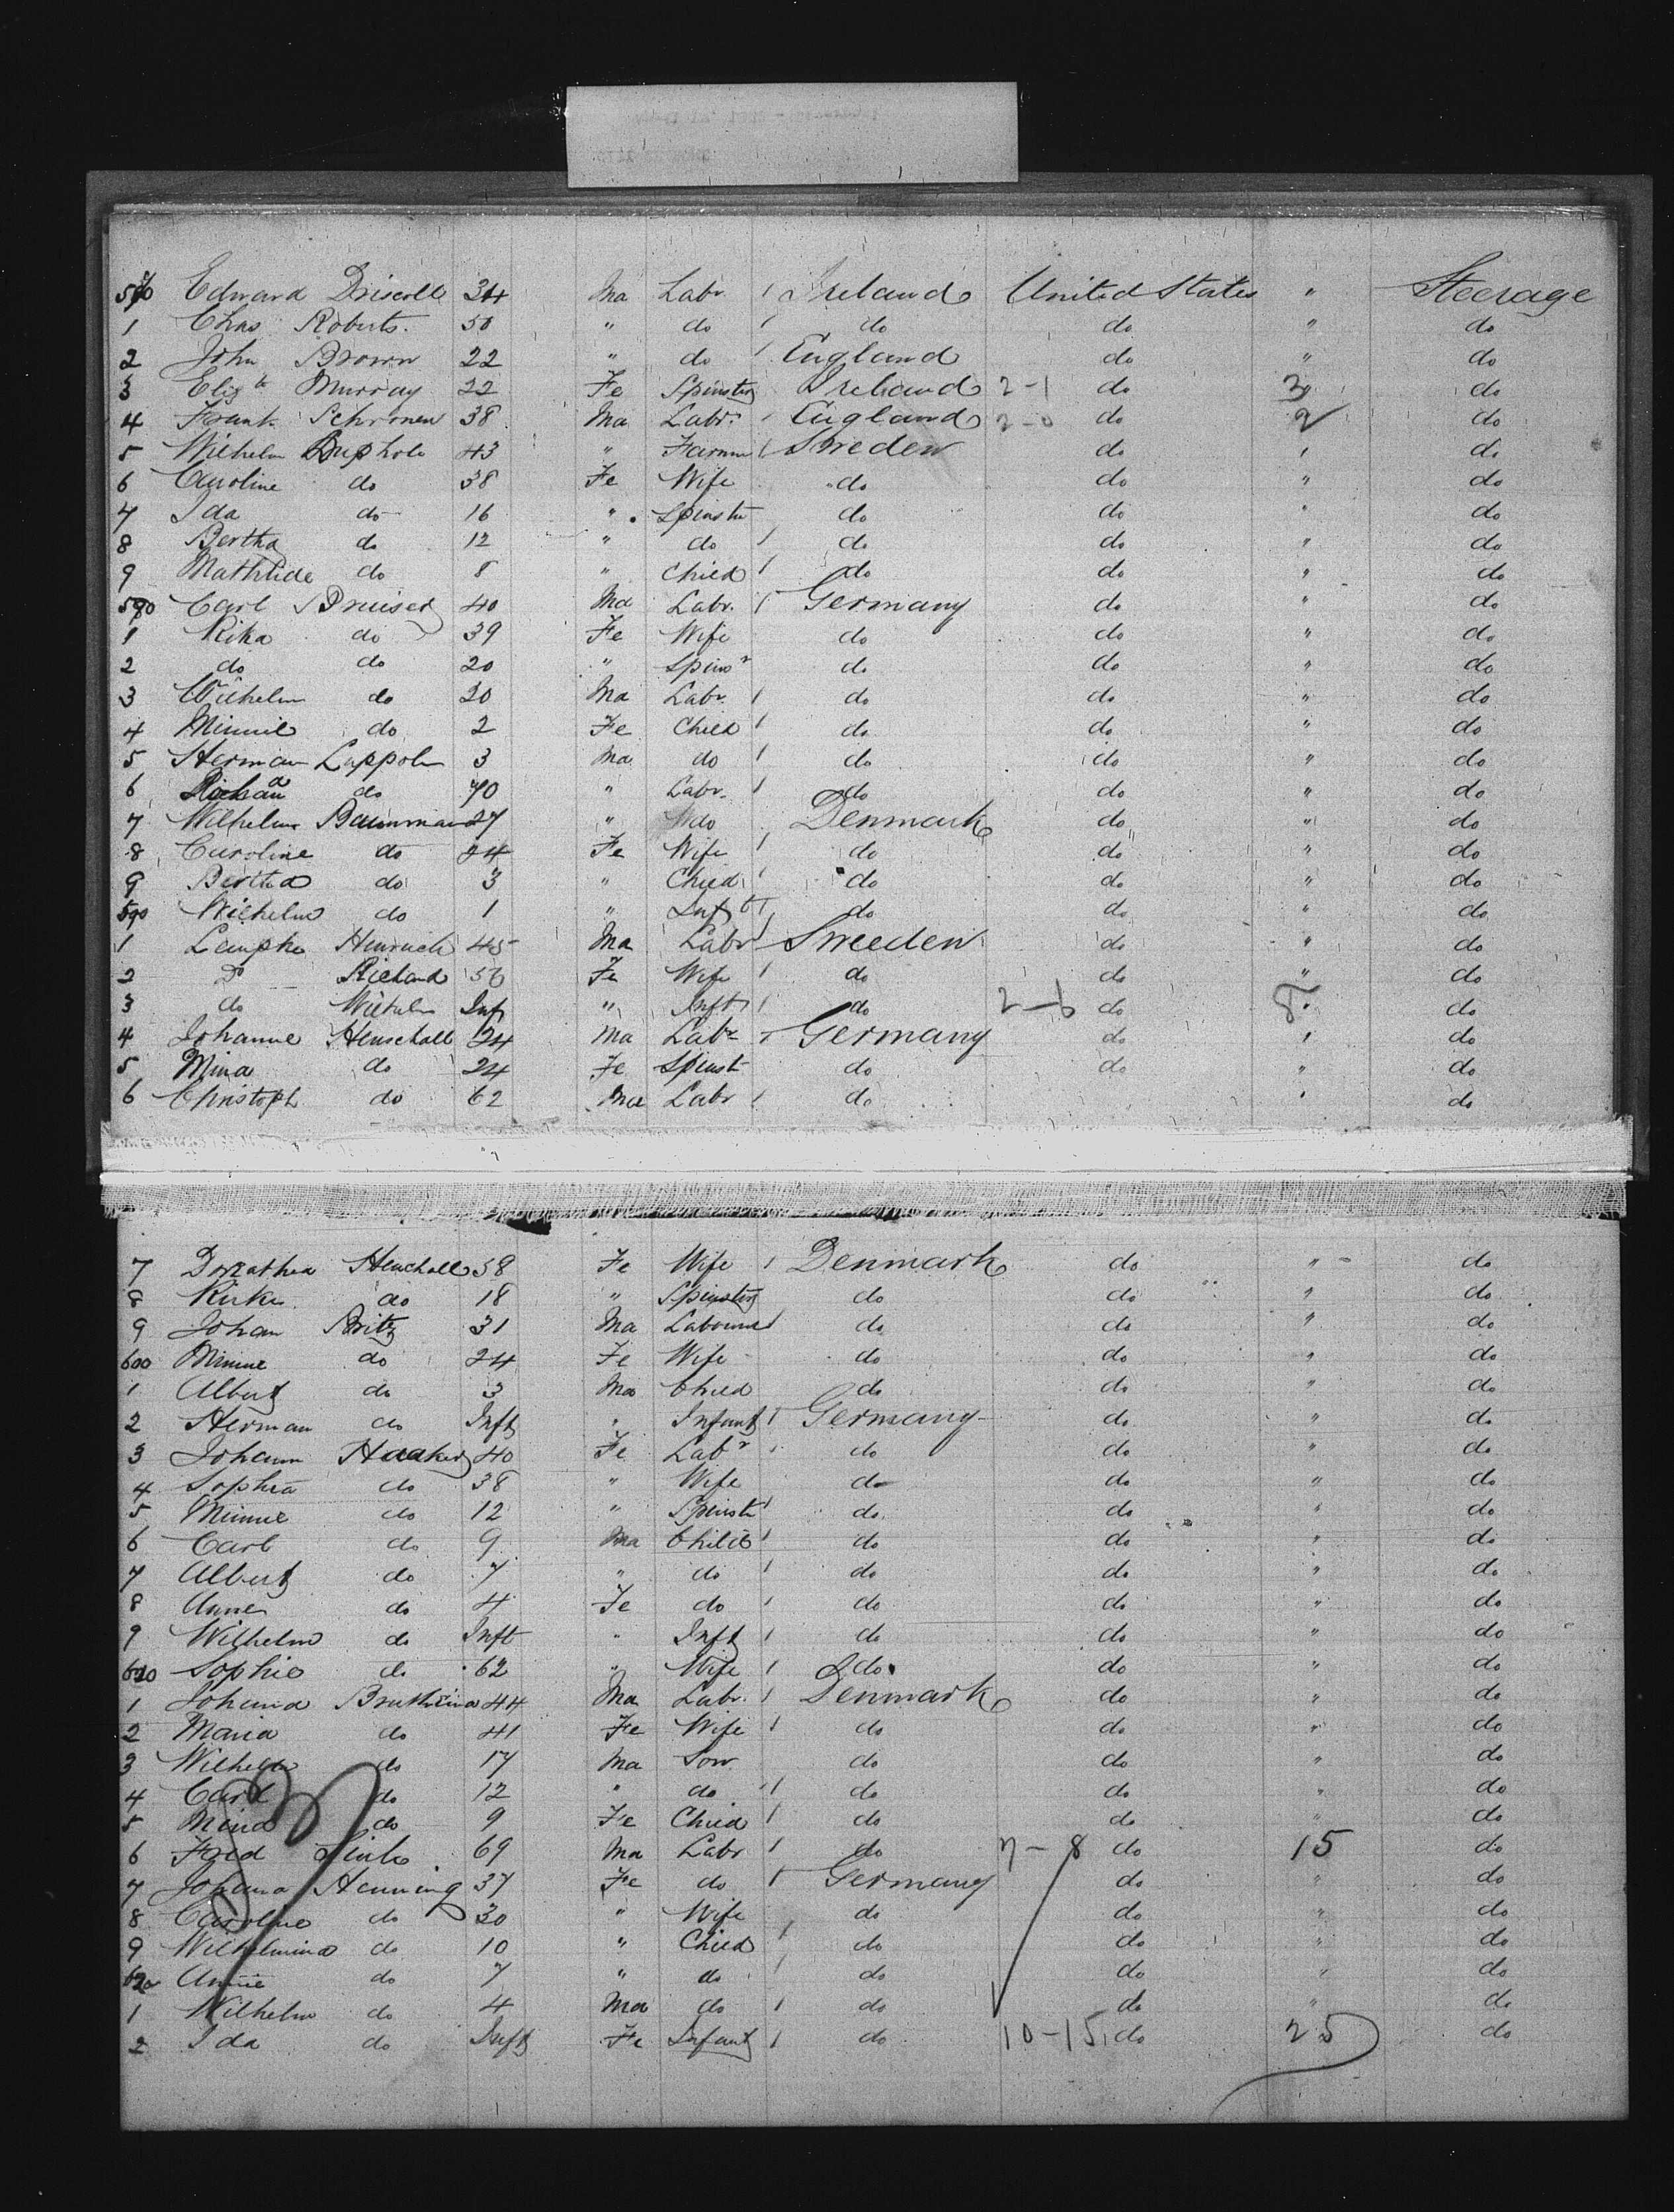 570 Edward Driscoll 34 Ma Labr Ireland United States " Steerage
1 Chas Roberts. 50 " do do do " do
2 John Brown 22 " do England do " do
3 Elizth Murray 22 Fe Spinster Ireland 2-1 do 3 do
4 Frank Schronen 38 Ma Labr England 2-0 do 2 do
5 Wilhelm 43 " Farmer Sweden do " do
6 Caroline do 38 Fe Wife do do " do
7 Ida do 16 " Spinstr do do " do
8 Bertha do 12 " do do do " do
9 Mathilde do 8 " Child do do " do
580 Carl 40 Ma Labr. Germany do " do
1 Rika do 39 Fe Wife do do " do
2 do do 20 " Spinsr do do " do
3 Wilhelm do 20 Ma Labr. do do " do
4 Minnie do 2 Fe Child do do " do
5 Herman Lappoln 3 Ma do do do " do
6 do 70 " Labr. do do " do
7 Wilhelm Baumman 27 " do Denmark do " do
8 Caroline do 24 Fe Wife do do " do
9 Bertha do 3 " Child do do " do
590 Wilhelm do 1 " Inft do do " do
1 Lempke Heinrich 45 Ma Labr Sweeden do " do
2 Do Richard 50 Fe Wife do do " do
3 do Wilhelm Inf " Inft do 2-6 do 8 do
4 Johanne Henschall 24 Ma Labr Germany do " do
5 Mina do 24 Fe Spinst do do " do
6 Christoph do 62 Ma Labr do " do
7 Dorathea Henchall 58 Fe Wife Denmark do " do
8 do 18 " Spinster do do " do
9 Johan Britz 31 Ma Labourer do do " do
600 Minnie do 24 Fe Wife do do " do
1 Albert do 3 Ma Child do do " do
2 Herman do Inft " Infant Germany do " do
3 Johann Haaker 40 Fe Labr do do " do
4 Sophia do 38 " Wife do do " do
5 Minnie do 12 " Spinstr do do " do
6 Carl do 9 Ma Child do do " do
7 Albert do 7 " do do do " do
8 Anne do 4 Fe do do do " do
9 Wilhelm do Inft " Inft do do " do
610 Sophie do 62 " Wife do do " do
1 Johana 44 Ma Labr. Denmark do " do
2 Maria do 41 Fe Wife do do " do
3 Wilhelm do 17 Ma Son do do " do
4 Carl do 12 " do do do " do
5 Mina do 9 Fe Child do do " do
6 Fred Links 69 Ma Labr do 7-8 do 15 do
7 Johana Henning 37 Fe do Germany do " do
8 Caroline do 30 " Wife do do " do
9 Wilhelmina do 10 " Child do do " do
620 Annie do 7 " do do do " do
1 Wilhelm do 4 Ma do do do " do
2 Ida do Inft Fe Infant do 10-15 do 25 do